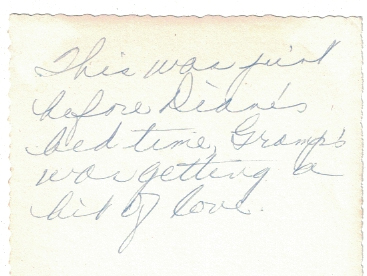 This was just
before Diane's
bed time, Gramp's
was getting a
bit of love.